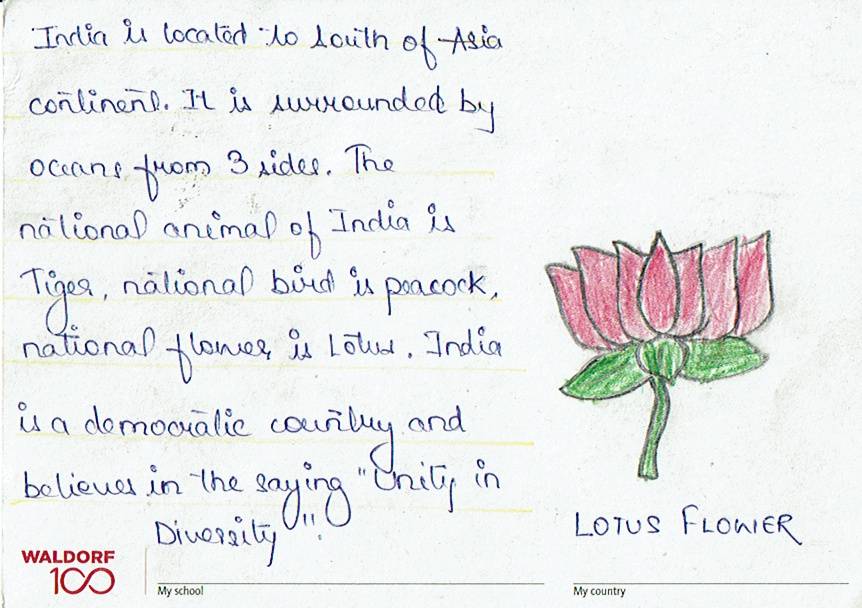 India is located to south of Asia
continent. It is surrounded by
oceans from 3 sides. The
national animal of India is
Tiger, national bird is peacock,
national flower is Lotus. India
is a democratic country and
believes in the saying "Unity in
Diversity".
LOTUS FLOWER
WALDORF
100
My school
My country